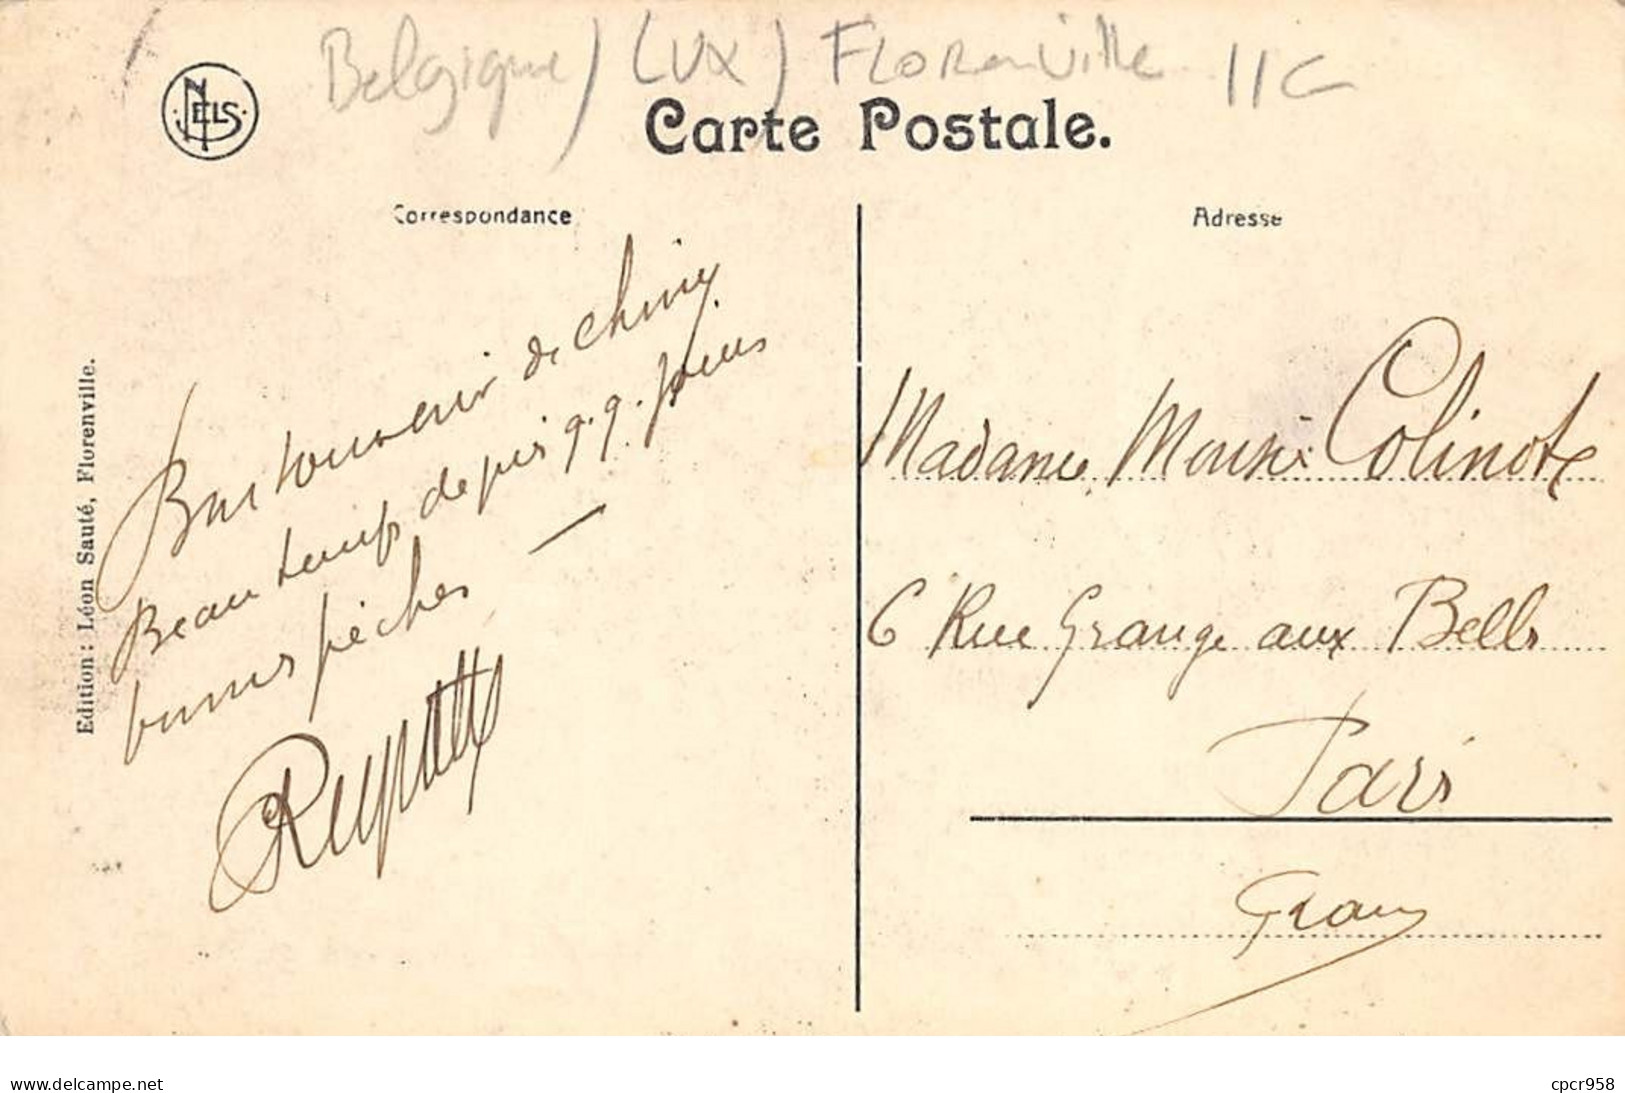 Belgique) (Lux) Florenville 11C
NELS
Carte Postale.
Correspondance
Adresse
Edition : Léon Sauté, Florenville.
Bon souvenir de Chiny.
Beau temps depuis q.q. jours
bonnes pêches —
Madame Colinot
6 Rue Grange aux Belles
Paris
cpcr958
www.delcampe.net